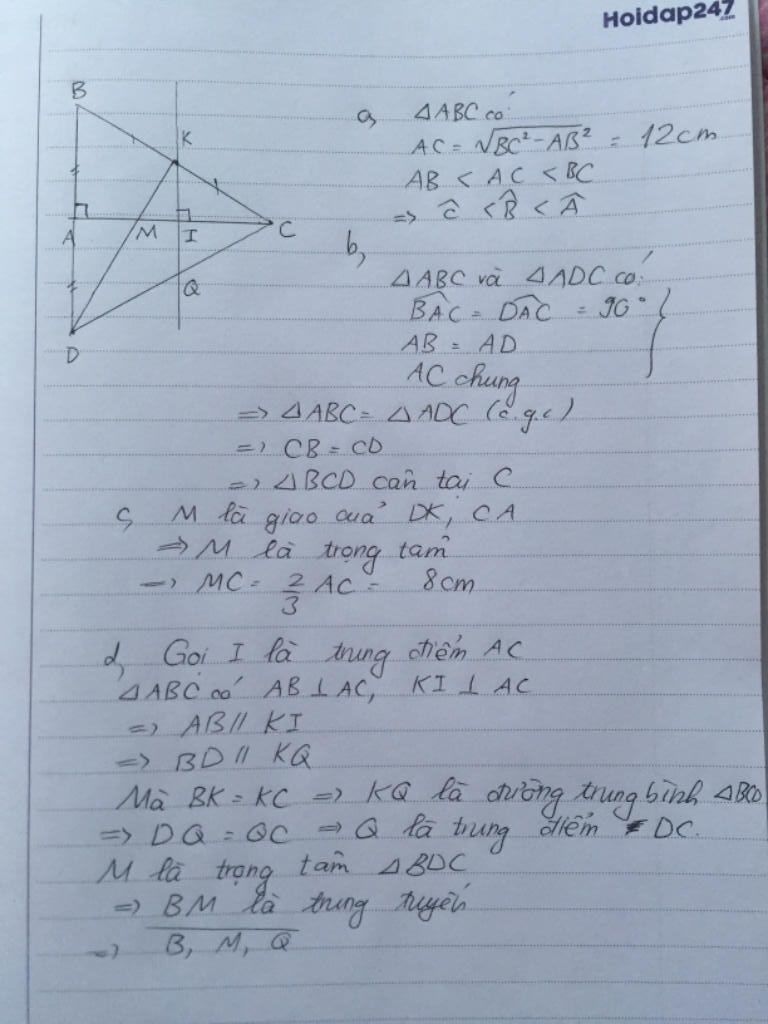 Hoidap247
.com
B
K
A
M
I
C
Q
D
a, △ABC có
AC = √BC² - AB² = 12cm
AB < AC < BC
=> Ĉ < B̂ < Â
b,
△ABC và △ADC có:
BAC = DAC = 90°
AB = AD
AC chung
=> △ABC = △ADC (c.g.c)
=> CB = CD
=> △BCD cân tại C
c, M là giao của DK, CA
=> M là trọng tâm
=> MC = 2/3 AC = 8cm
d, Gọi I là trung điểm AC
△ABC có AB ⊥ AC, KI ⊥ AC
=> AB // KI
=> BD // KQ
Mà BK = KC => KQ là đường trung bình △BCD
=> DQ = QC => Q là trung điểm DC.
M là trọng tâm △BDC
=> BM là trung tuyến
=> B, M, Q